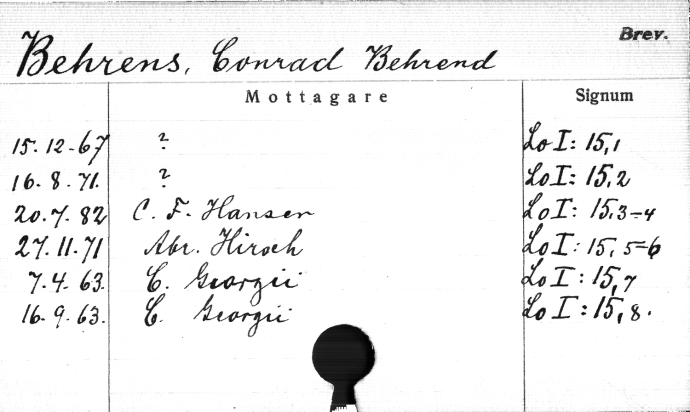 Brev.
Behrens, Conrad Behrend
Mottagare Signum
15.12-67 ? Lo I: 15,1
16.8.71. ? Lo I: 15,2
20.7.82 C. F. Hansen Lo I: 15,3-4
27.11.71 Abr. Hirsch Lo I: 15,5-6
7.4.63. C. Georgii Lo I: 15,7
16.9.63. C. Georgii Lo I: 15,8.